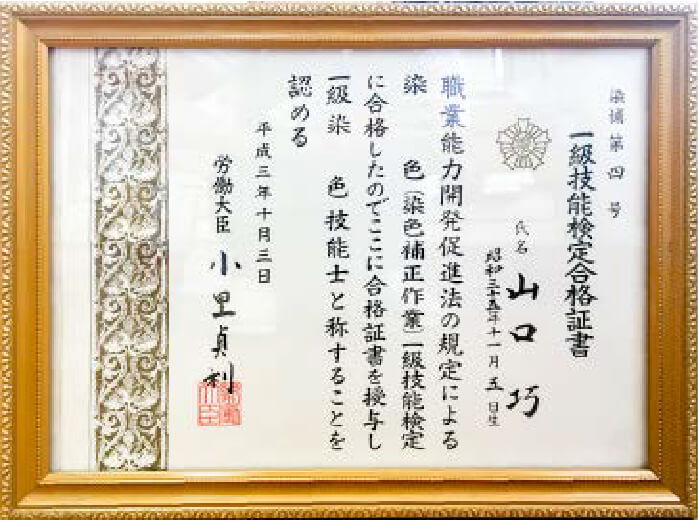 染補第四号
一級技能検定合格証書
氏名 山口 巧
昭和三十五年十一月五日生
職業能力開発促進法の規定による
染 色(染色補正作業)一級技能検定
に合格したのでここに合格証書を授与し
一級染 色技能士と称することを
認める
平成三年十月三日
労働大臣 小里貞利